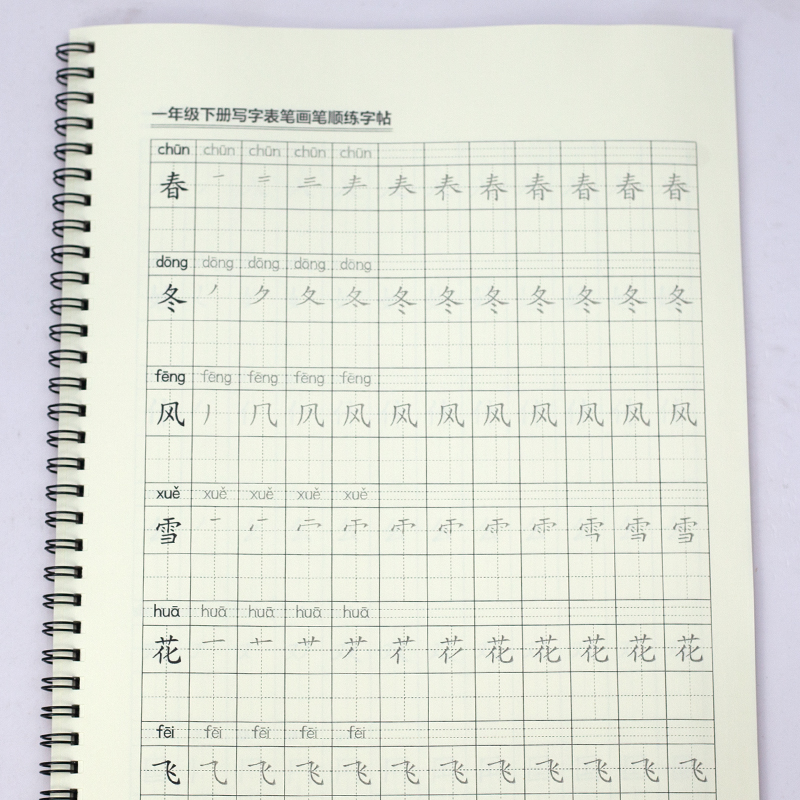 一年级下册写字表笔画笔顺练字帖
chūn chūn chūn chūn chūn
春 一 二 三 春 春 春
dōng dōng dōng dōng dōng
冬 丿 ク 夂 冬 冬 冬 冬 冬 冬 冬
fēng fēng fēng fēng fēng
风 丿 几 风 风 风 风 风 风 风 风
xuě xuě xuě xuě xuě
雪 一 雪
huā huā huā huā huā
花 一 艹 花 花 花 花 花
fēi fēi fēi fēi fēi
飞 乙 飞 飞 飞 飞 飞 飞 飞 飞 飞